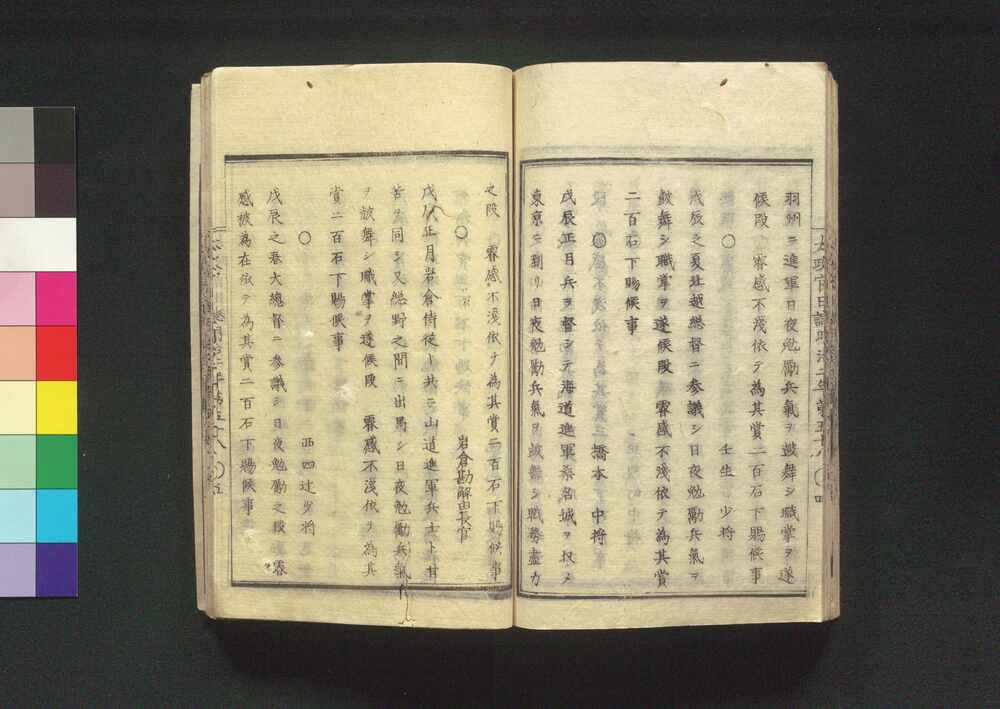 羽州ニ進軍日夜勉勵兵氣ヲ鼓舞シ職掌ヲ遂
候段　睿感不淺依テ為其賞二百石下賜候事
○　壬生少将
戊辰之夏北越総督ニ参議シ日夜勉勵兵氣ヲ
鼓舞シ職掌ヲ遂候段　睿感不淺依テ為其賞
二百石下賜候事
○　橋本中将
戊辰正月兵ヲ督シテ海道進軍桑名城ヲ収メ
東京ニ到リ日夜勉勵兵氣ヲ鼓舞シ職務盡力
之段　睿感不淺依テ為其賞二百石下賜候事
○　岩倉勘解由長官
戊辰正月岩倉侍従ト共ニ山道進軍兵士ト甘
苦ヲ同シ又総野之間ニ出馬シ日夜勉勵兵氣
ヲ鼓舞シ職掌ヲ遂候段　睿感不淺依テ為其
賞二百石下賜候事
○　西四辻少将
戊辰之春大總督ニ参議シ日夜勉勵之段　睿
感被為在依テ為其賞二百石下賜候事
太政官日誌明治二年　第五十八　○四
○五